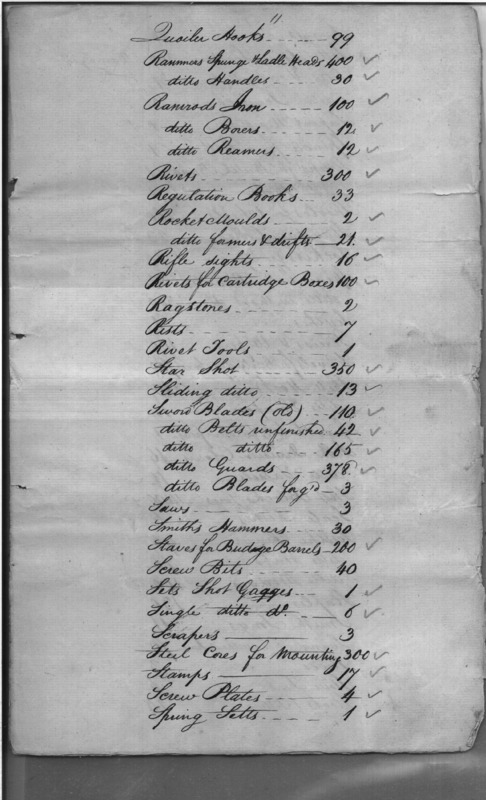 Quoiler Hooks " 99
Rammers Spunge & Ladle Heads 400 ✓
ditto Handles 30 ✓
Ramrods Iron 100 ✓
ditto Borers 12 ✓
ditto Reamers 12 ✓
Rivets 300 ✓
Regulation Books 33
Rocket Moulds 2 ✓
ditto formers & drifts 21 ✓
Rifle sights 16 ✓
Rivets for Cartridge Boxes 100 ✓
Ragstones 2
Rists 7
Rivet Tools 1
Star Shot 350 ✓
Sliding ditto 13 ✓
Sword Blades (old) 110 ✓
ditto Belts unfinished 42 ✓
ditto ditto 165 ✓
ditto Guards 378 ✓
ditto Blades forg'd 3
Saws 3
Smiths Hammers 30
Staves for Budge Barrels 200 ✓
Screw Bits 40
Sets Shot Gagges 1 ✓
Single ditto do. 6 ✓
Scrapers 3
Steel Cores for Mounting 300 ✓
Stamps 17 ✓
Screw Plates 4 ✓
Spring Setts 1 ✓